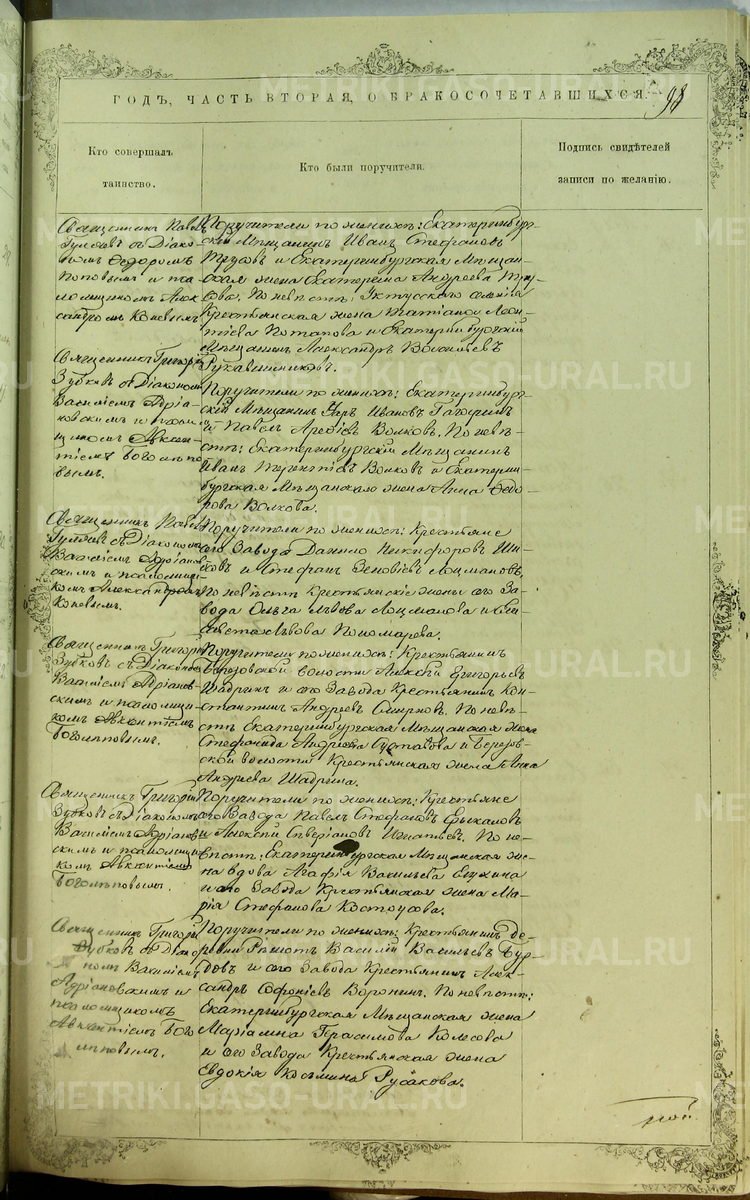 ГОДЪ, ЧАСТЬ ВТОРАЯ, О БРАКОСОЧЕТАВШИХСЯ.
98
Кто совершалъ
таинство.
Кто были поручители.
Подпись свидѣтелей
записи по желанію.
Священникъ Павелъ
съ Діако-
номъ Ѳедоромъ
Поповымъ и пса-
ломщикомъ Алек-
сандромъ Коневымъ
Поручители по женихѣ: Екатеринбург-
скій Мѣщанинъ Иванъ Стефановъ
Трусовъ и Екатеринбургская Мѣщан-
ская жена Екатерина Андреева Тру-
сова. По невѣстѣ: Уктусского селенія
Крестьянская жена Татіана Леон-
тіева Потапова и Екатеринбургскій
Мѣщанинъ Александръ Васильевъ
Рукавишниковъ.
Священникъ Григорій
Зубковъ съ Діакономъ
Василіемъ Адріа-
новскимъ и псалом-
щикомъ Авксен-
тіемъ Боголѣпо-
вымъ.
Поручители по женихѣ: Екатеринбург-
скій Мѣщанинъ Ивановъ
и Павелъ Волковъ. По невѣ-
стѣ: Екатеринбургскій Мѣщанинъ
Иванъ Терентіевъ Волковъ и Екатерин-
бургская Мѣщанская жена Анна Ѳедо-
рова Волкова.
Священникъ Павелъ
съ Діакономъ
Василіемъ Адріанов-
скимъ и псаломщи-
комъ Александромъ
Коневымъ.
Поручители по женихѣ: Крестьяне
сего Завода Данило Никифоровъ
и Стефанъ Зеновіевъ Лоцмановъ,
По невѣстѣ Крестьянскіе жены сего За-
вода Ольга Львова Лоцманова и Ели-
савета Львова Пономарева.
Священникъ Григорій
Зубковъ съ Діакономъ
Василіемъ Адріанов-
скимъ и псаломщи-
комъ Авксентіемъ
Боголѣповымъ.
Поручители по женихѣ: Крестьянинъ
Березовской волости Алексѣй Григорьевъ
Шадринъ и сего Завода Крестьянинъ Кон-
стантинъ Андреевъ Смирновъ. По невѣ-
стѣ Екатеринбургская Мѣщанская жена
Стефанида Андреева и Березов-
ской волости Крестьянская жена Анна
Андреева Шадрина.
Священникъ Григорій
Зубковъ съ Діакономъ
Василіемъ Адріанов-
скимъ и псаломщи-
комъ Авксентіемъ
Боголѣповымъ.
Поручители по женихѣ: Крестьяне
сего Завода Павелъ Стефановъ
и Алексѣй Северіановъ Игнатьевъ. По не-
вѣстѣ: Екатеринбургская Мѣщанская же-
на вдова Агафія Васильева
и сего Завода Крестьянская жена Ма-
рія Стефанова Костоусова.
Священникъ Григорій
Зубковъ съ Діако-
номъ Василіемъ
Адріановскимъ и
псаломщикомъ
Авксентіемъ Бого-
лѣповымъ.
Поручители по женихѣ: Крестьянинъ де-
ревни Решотъ Василій Васильевъ
и сего Завода Крестьянинъ Алек-
сандръ Софоніевъ Воронинъ. По невѣстѣ:
Екатеринбургская Мѣщанская жена
Маріамна Герасимова Колесова
и сего Завода Крестьянская жена
Евдокія Косьмина Русакова.
METRIKI.GASO-URAL.RU